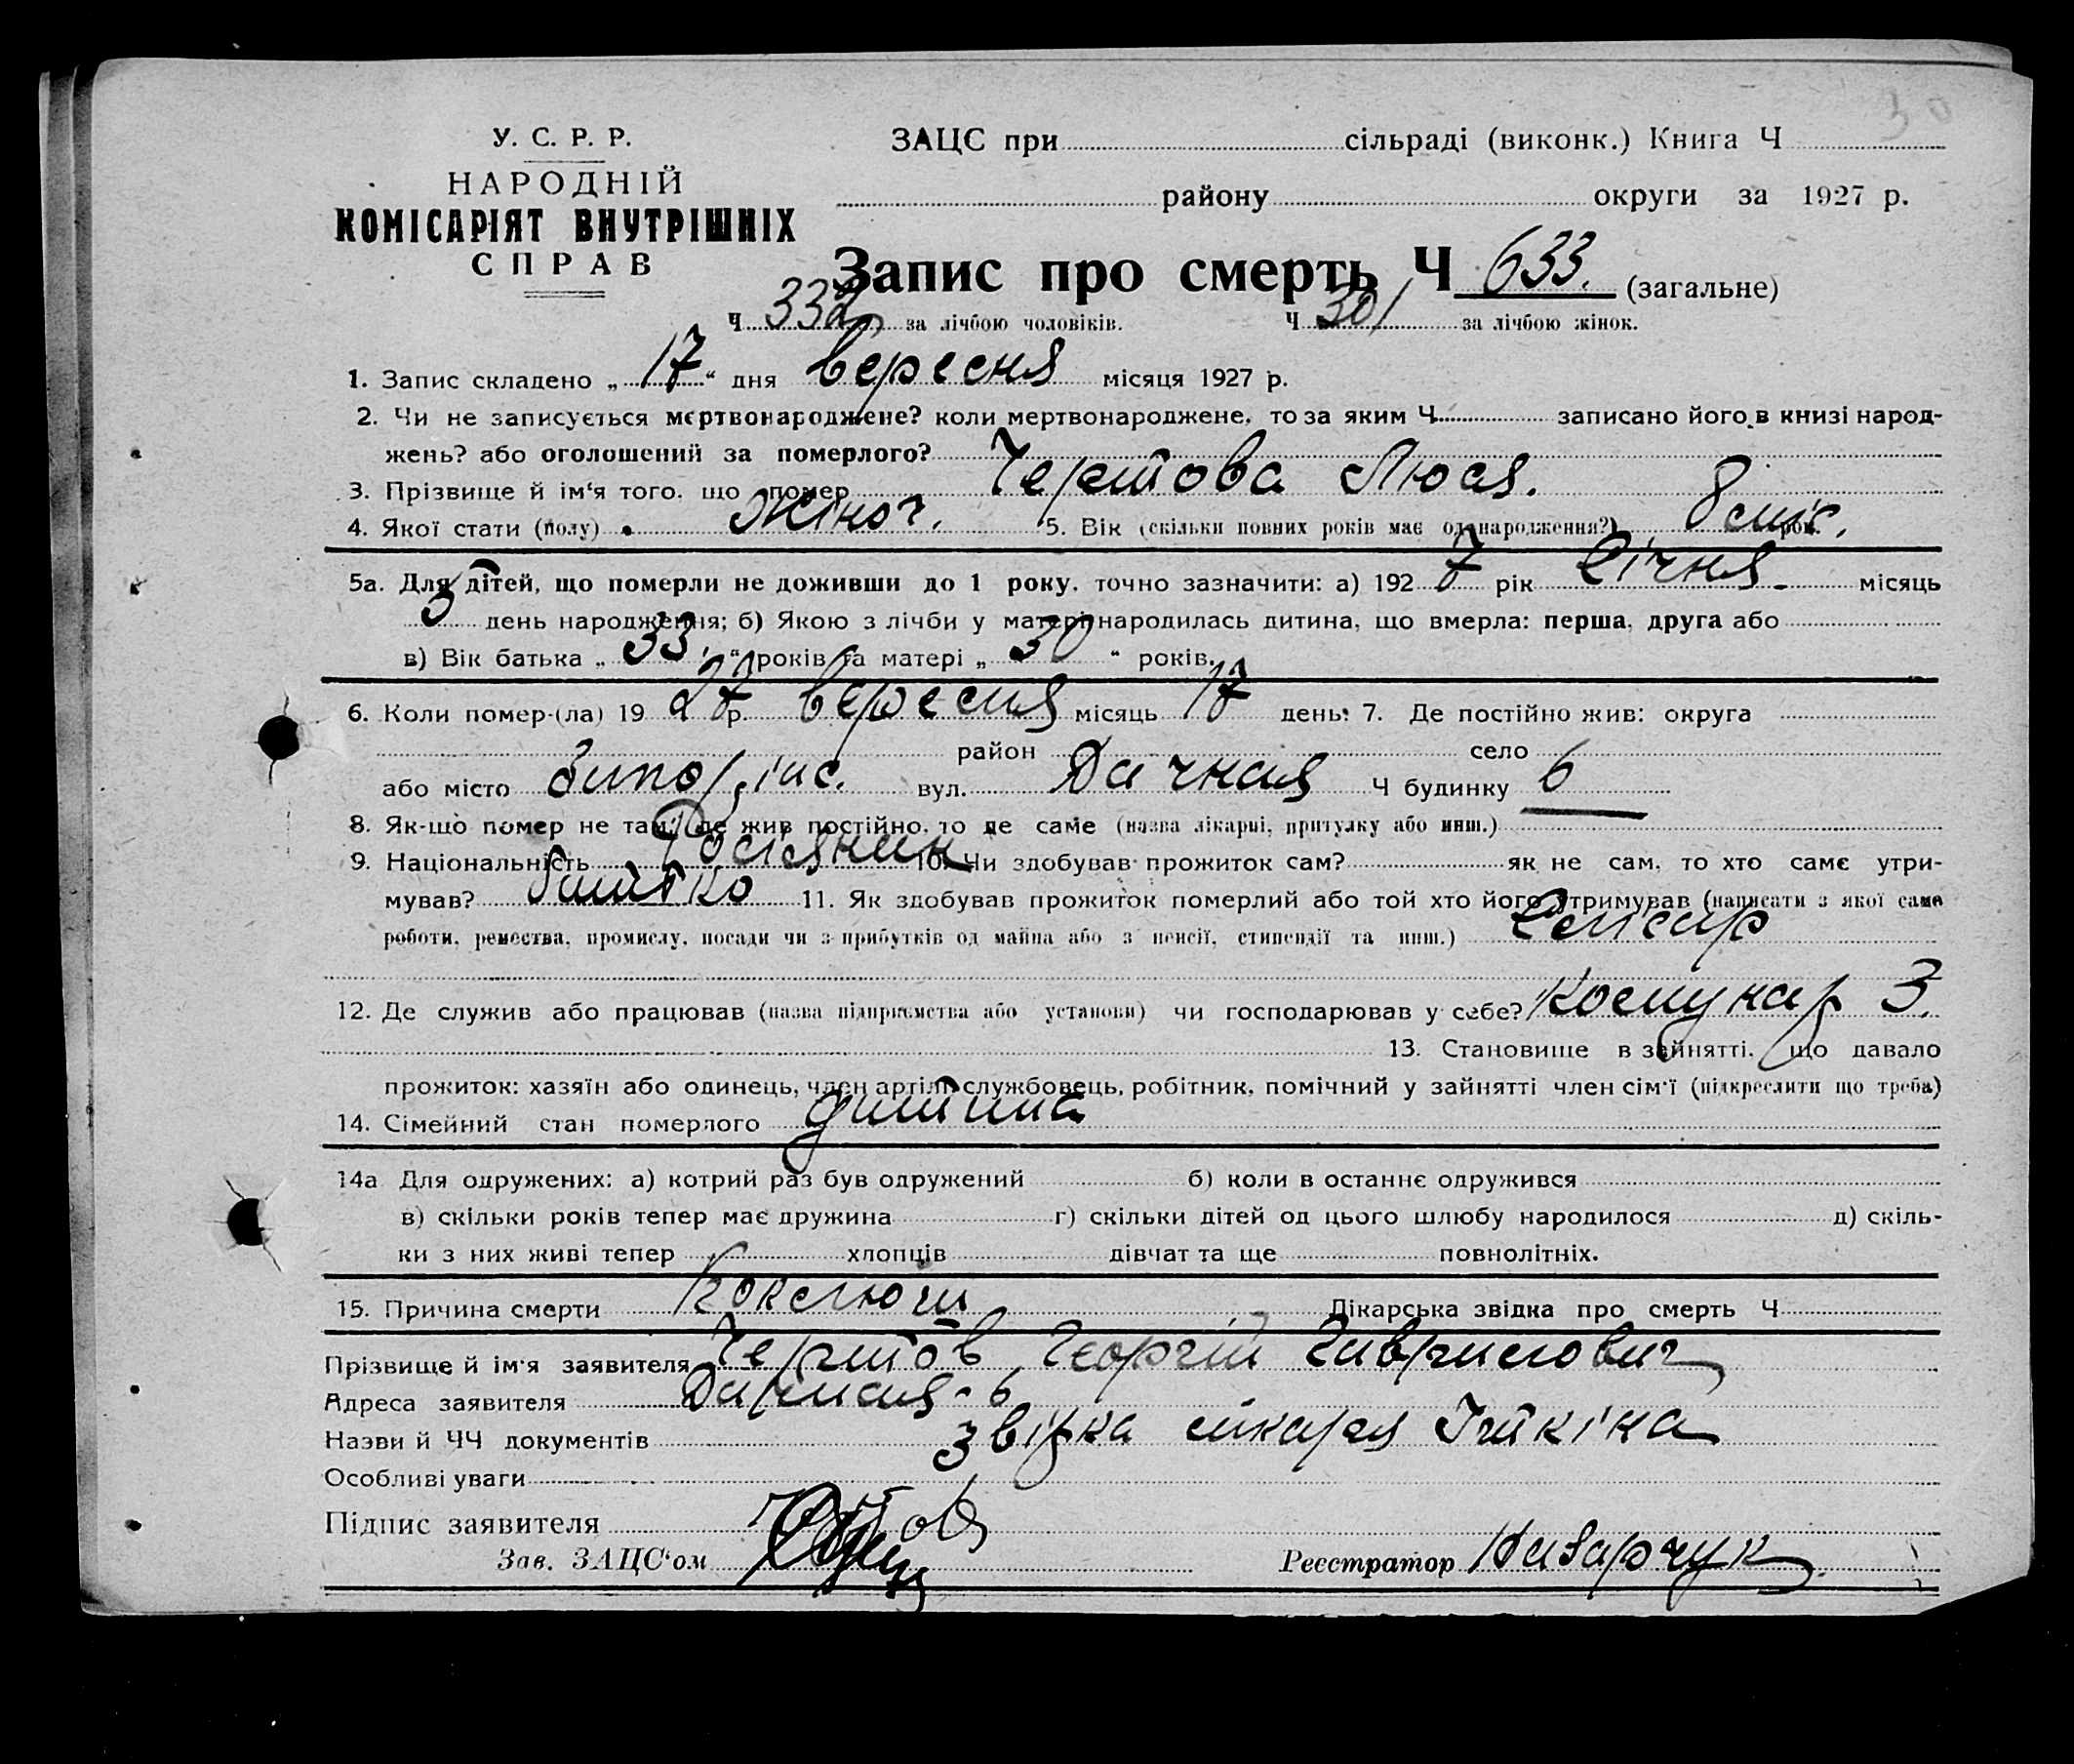 30
У. С. Р. Р.
НАРОДНІЙ
КОМІСАРІЯТ ВНУТРІШНІХ
СПРАВ
ЗАЦС при сільраді (виконк.) Книга Ч
району округи за 1927 р.
Запис про смерть Ч 633. (загальне)
Ч 332 за лічбою чоловіків. Ч 301 за лічбою жінок.
1. Запис складено „17“ дня вересня місяця 1927 р.
2. Чи не записується мертвонароджене? коли мертвонароджене, то за яким Ч. записано його в книзі народ-
жень? або оголошений за померлого?
3. Прізвище й ім'я того, що помер Чертова Люся.
4. Якої стати (полу) жіноч. 5. Вік (скільки повних років має од народження?) 8 міс. рок.
5а. Для дітей, що померли не доживши до 1 року, точно зазначити: а) 1927 рік Січня місяць
5 день народження; б) Якою з лічби у матері народилась дитина, що вмерла: перша, друга або
в) Вік батька „33.“ років та матері „30“ років.
6. Коли помер-(ла) 1927 р. вересня місяць 17 день; 7. Де постійно жив: округа
район село
або місто вул. Дачная Ч будинку 6
8. Як-що помер не там, де жив постійно, то де саме (назва лікарні, притулку або инш.)
9. Національність Росіянин 10. Чи здобував прожиток сам? як не сам, то хто саме утри-
мував? батько 11. Як здобував прожиток померлий або той хто його утримував (написати з якої саме
роботи, ремества, промислу, посади чи з прибутків од майна або з пенсії, стипендії та инш.) Слюсар
12. Де служив або працював (назва підприємства або установи) чи господарював у себе? Комунар 3.
13. Становище в зайнятті, що давало
прожиток: хазяїн або одинець, член артілі, службовець, робітник, помічний у зайнятті член сім'ї (підкреслити що треба)
14. Сімейний стан померлого дитина
14а Для одружених: а) котрий раз був одружений б) коли в останнє одружився
в) скільки років тепер має дружина г) скільки дітей од цього шлюбу народилося д) скіль-
ки з них живі тепер хлопців дівчат та ще повнолітніх.
15. Причина смерти Коклюш Лікарська звідка про смерть Ч
Прізвище й ім'я заявителя Чертов Георгій Гаврилович
Адреса заявителя Дачная - 6
Назви й ЧЧ документів Звідка лікаря Іткіна
Особливі уваги
Підпис заявителя
Зав. ЗАЦС'ом Реєстратор Назарчук